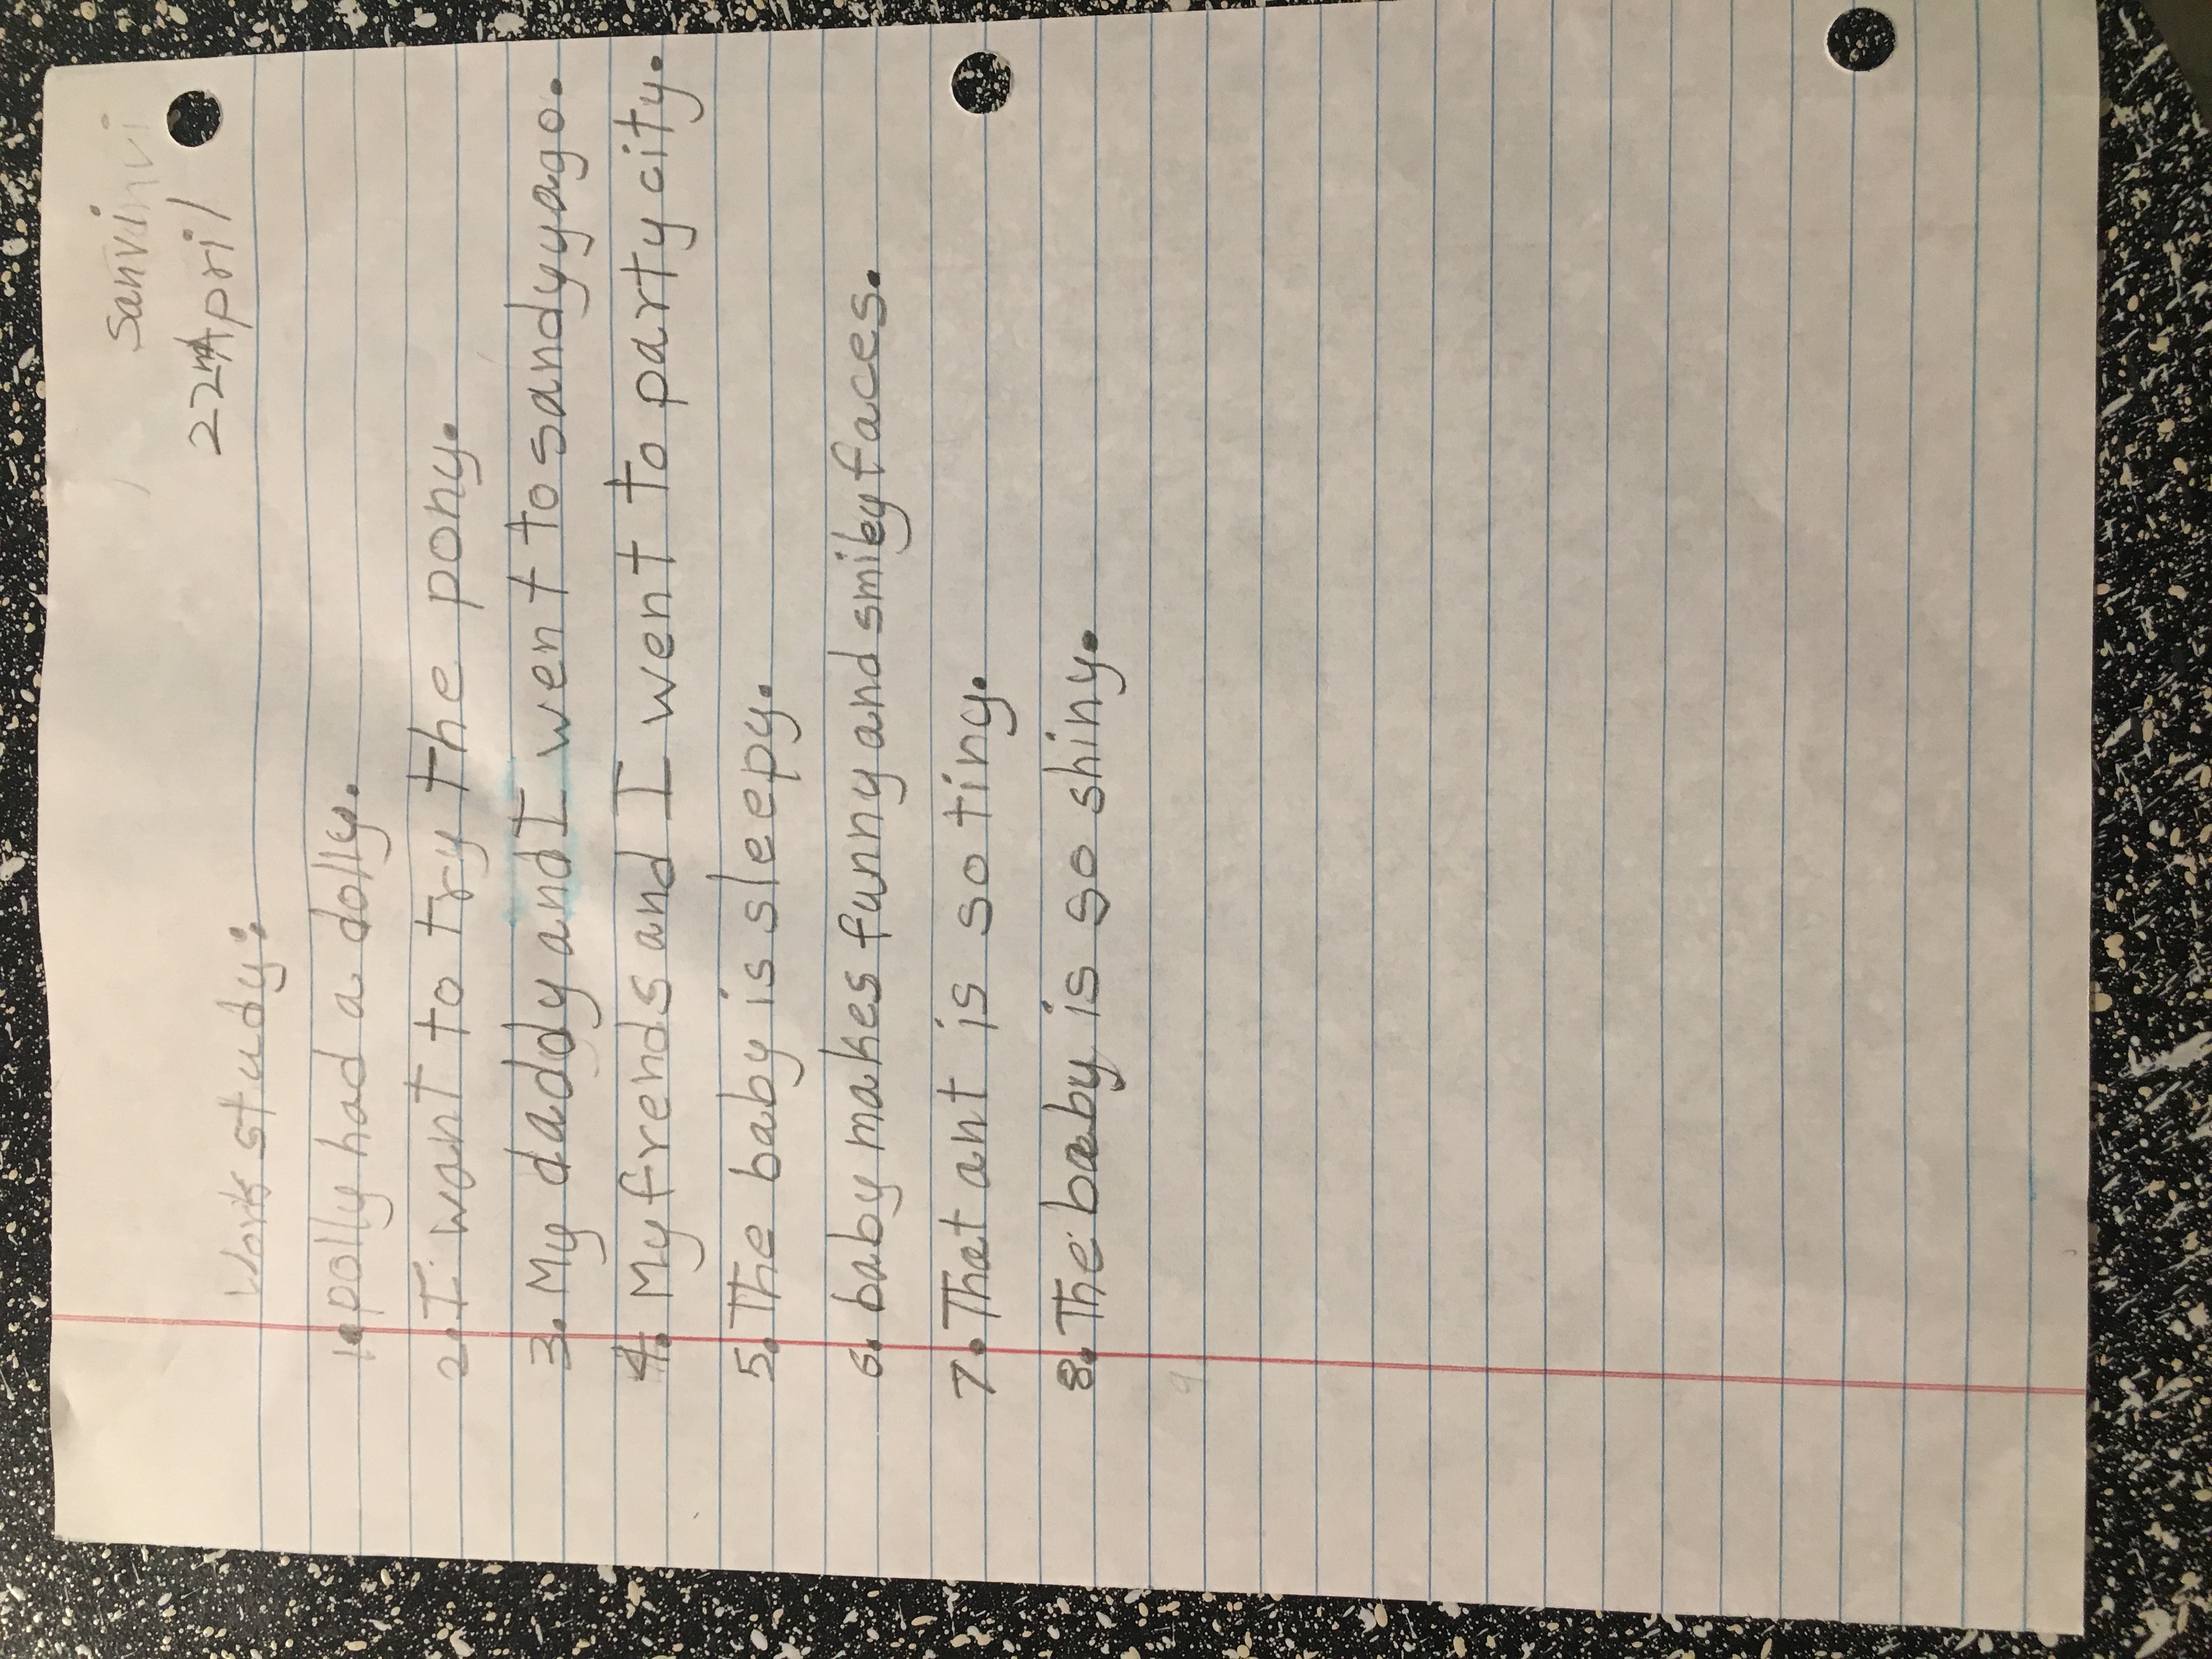 Sanvi
22nd April
Work study:
1. polly had a dolly.
2. I want to try the pony.
3. My daddy and I went to sandyyago.
4. My frends and I went to party city.
5. The baby is sleepy.
6. baby makes funny and smiley faces.
7. That ant is so tiny.
8. The baby is so shiny.
9.